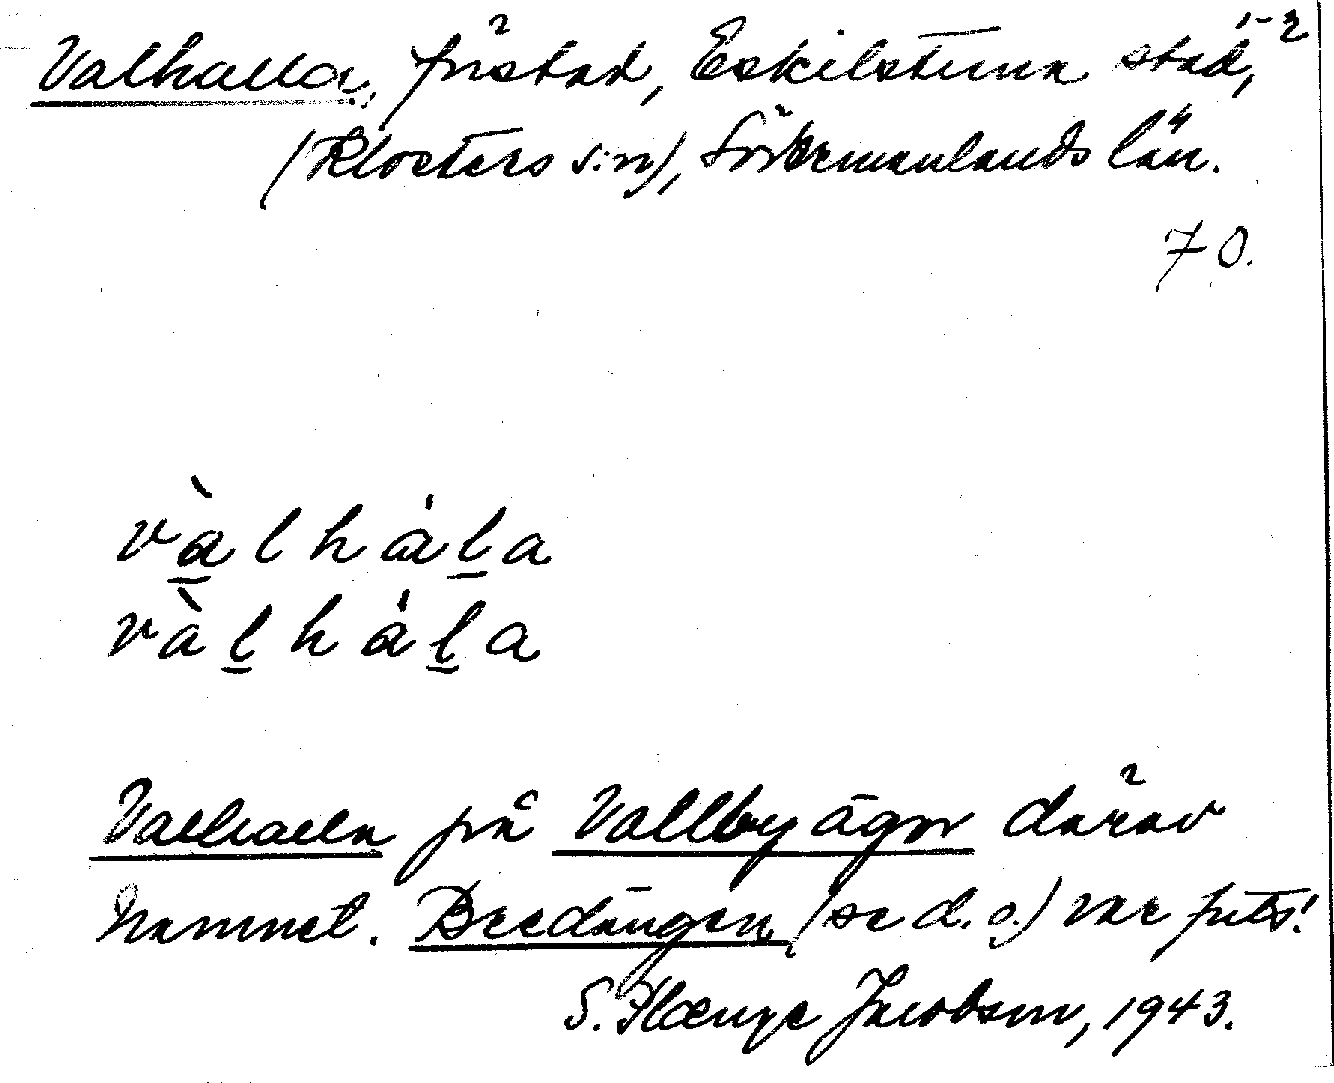 Valhalla, förstad, Eskilstuna stad, 1-2
(Klosters s:n), Södermanlands län.
70.
vàlhála
vàlhála
Valhalla på Vallby ägor därav
namnet. Bredängen (se d. o.) var puts!
S. Hænge Jacobsen, 1943.